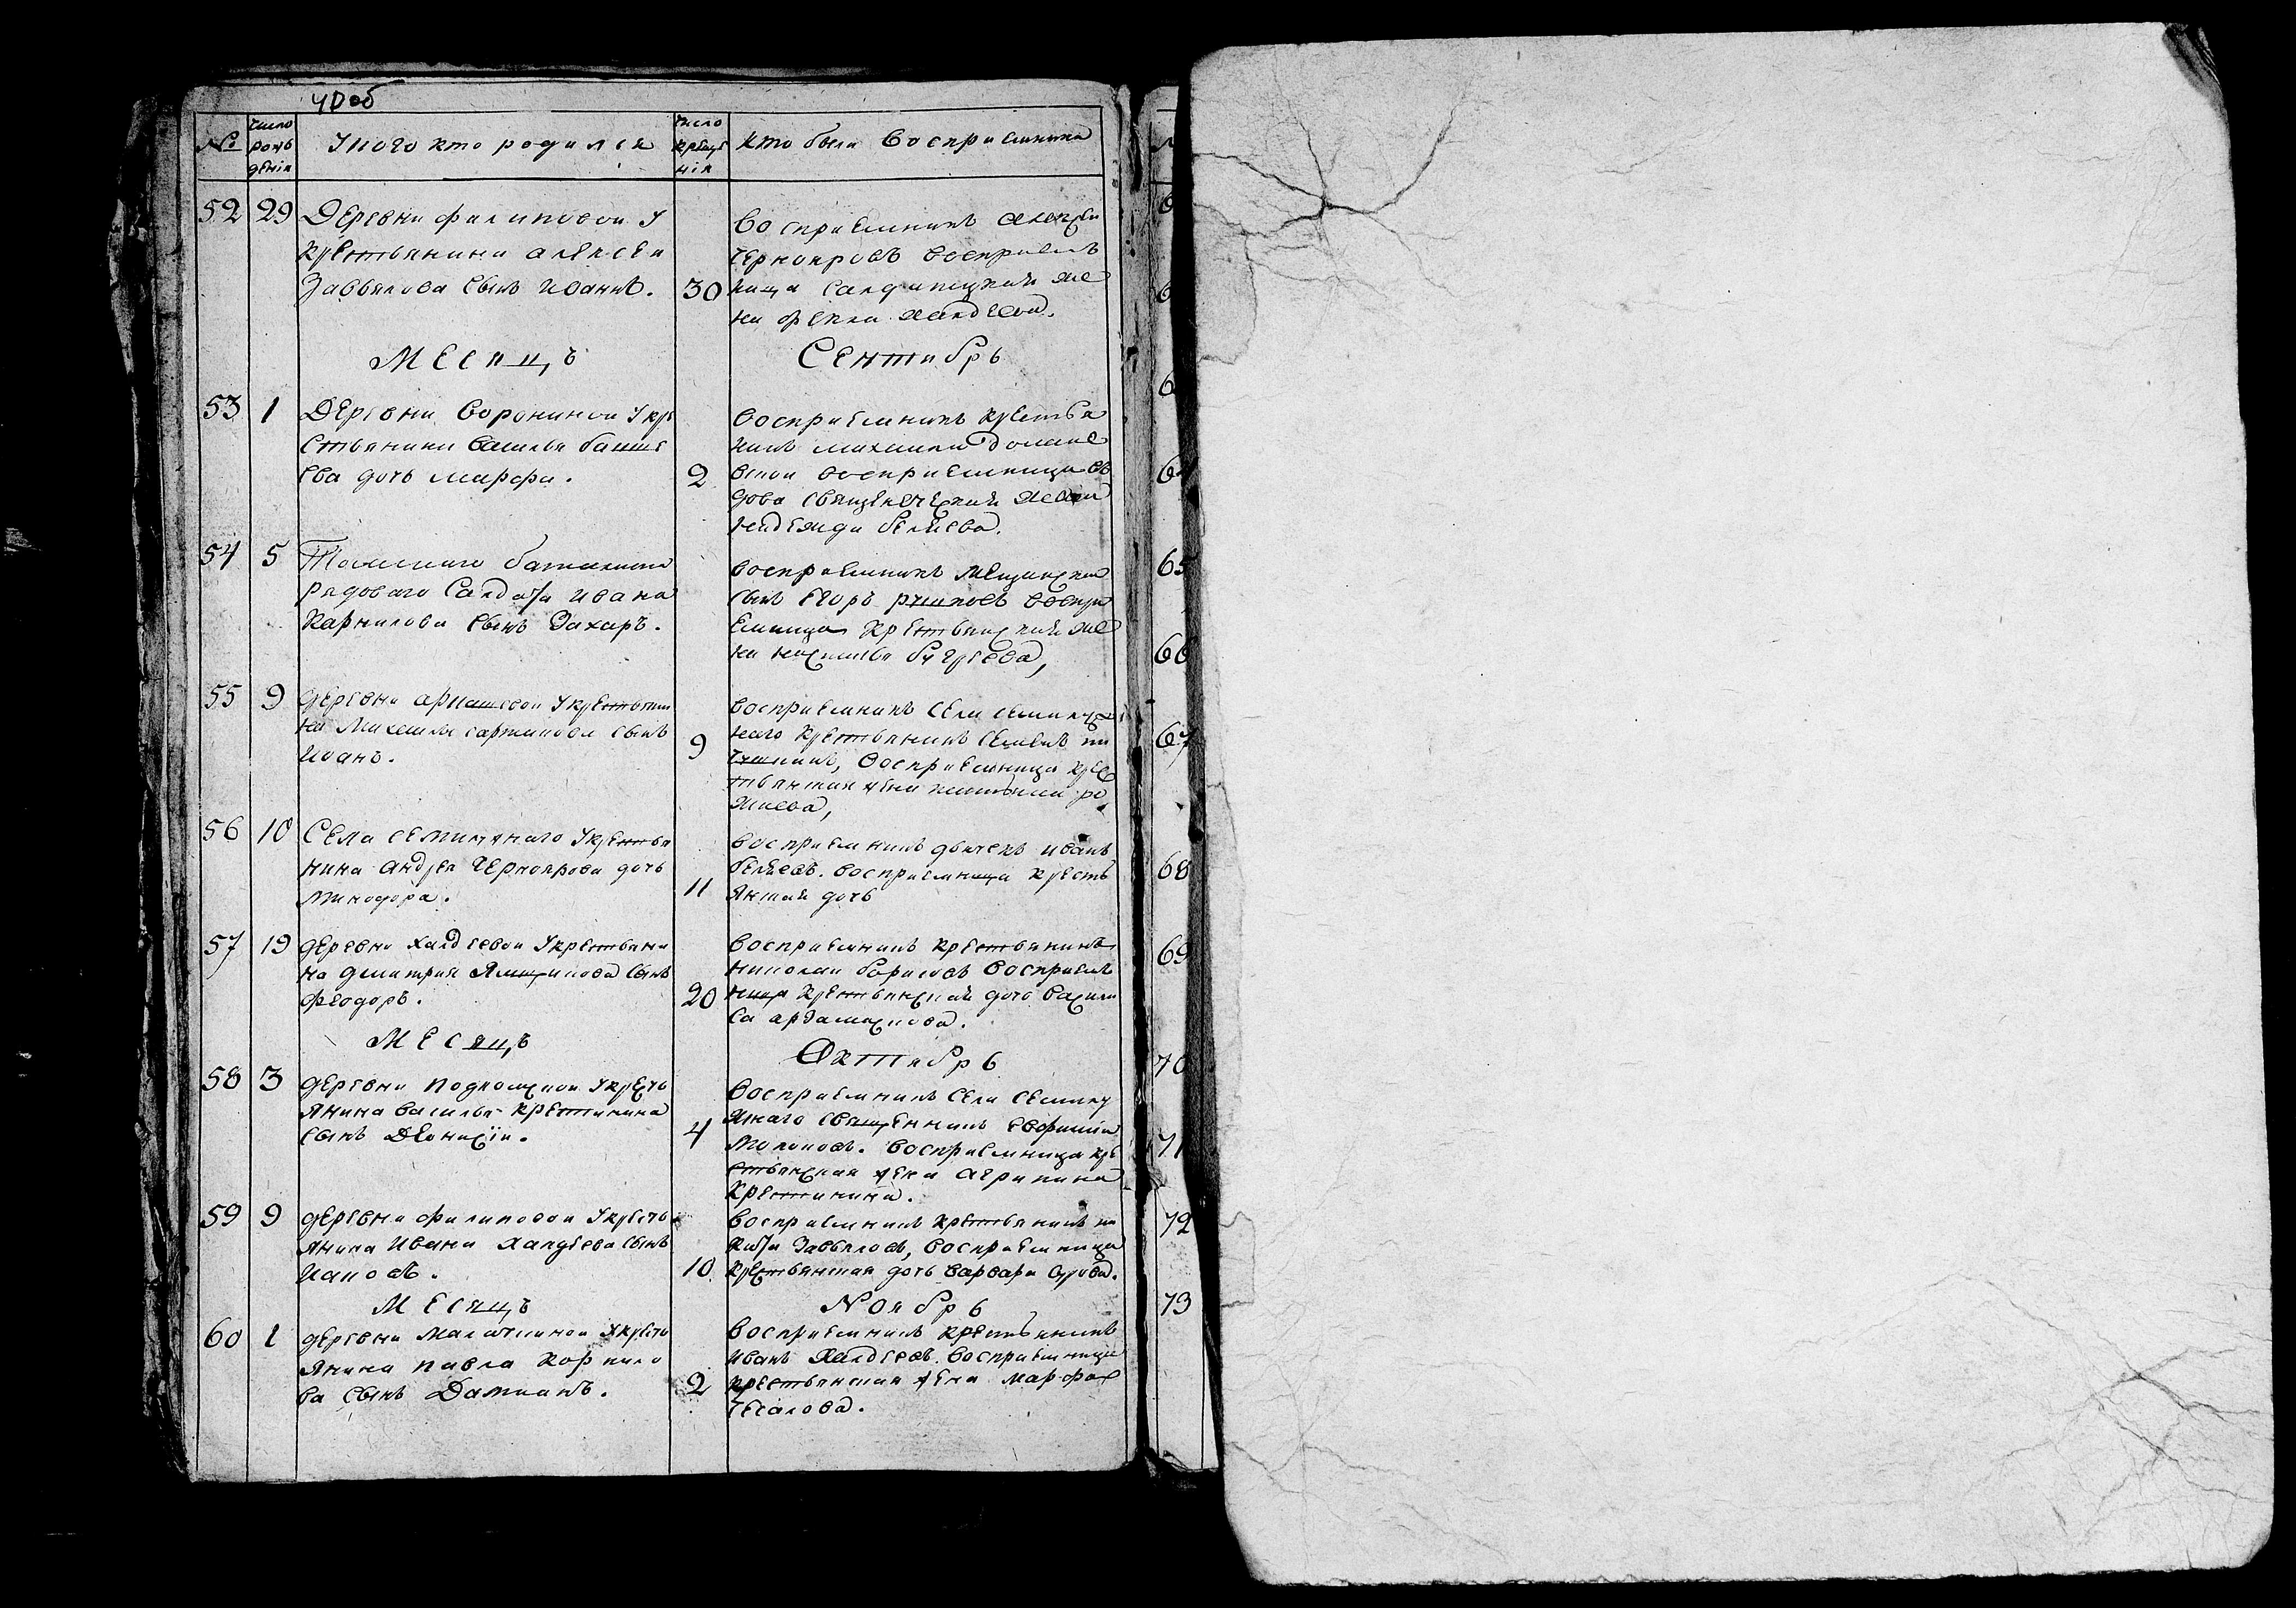 40об
№
число рожь дения
У кого кто родился
число креще ния
кто были восприемники
52 29 Деревни филиповой у
крестьянина алексея
Завьялова сынъ иваннъ. 30
восприемникъ алексеи
чернояровъ восприем
ница салдатцкия же
на фекла халдеева.
Месяцъ Сентябрь
53 1 Деревни воронинои у кре
стьянина василья
ева дочь марфа. 2
восприемникъ крестья
нинъ михаила
восприемница в
дова священическая жена
надежда беляева.
54 5 Томскаго баталиона
рядоваго салдата ивана
карнилова сынъ Захаръ.
восприемникъ
сынъ егоръ воспри
емница крестьянская же
на настасья
55 9 деревни у крестьяни
на михаила сынъ
иванъ. 9
восприемникъ села семилуж
наго крестьянинъ семенъ
восприемница крес
тьянская жена
56 10 Села семилужнаго у крестья
нина андрея черноярова дочь
минодора. 11
восприемникъ дьячекъ иванъ
беляевъ. восприемница кресть
янская дочь
57 19 деревни халдеевой у крестьяни
на дмитрия Ямщикова сынъ
феодоръ. 20
восприемникъ крестьянинъ
николаи борисовъ восприем
ница крестьянская дочь васили
са
Месяцъ Октябрь
58 3 деревни у кресть
янина василья крестинина
сынъ Дионисiи. 4
восприемникъ села семилу
жнаго священникъ евфимии
восприемница кре
стьянская жена агрипина
Крестинина.
59 9 деревни филиповой у кресть
янина ивана халдеева сынъ
иаковъ. 10
восприемникъ крестьянинъ ни
кита Завьяловъ, восприемница
крестьянская дочь варвара
Месяцъ Ноябрь
60 1 деревни малаческои у кресть
янина павла корнило
ва сынъ Дамианъ. 2
восприемникъ крестьянинъ
иванъ халдеевъ. восприемница
крестьянская жена марфа
чекалова.
65
66
67
68
69
70
71
72
73